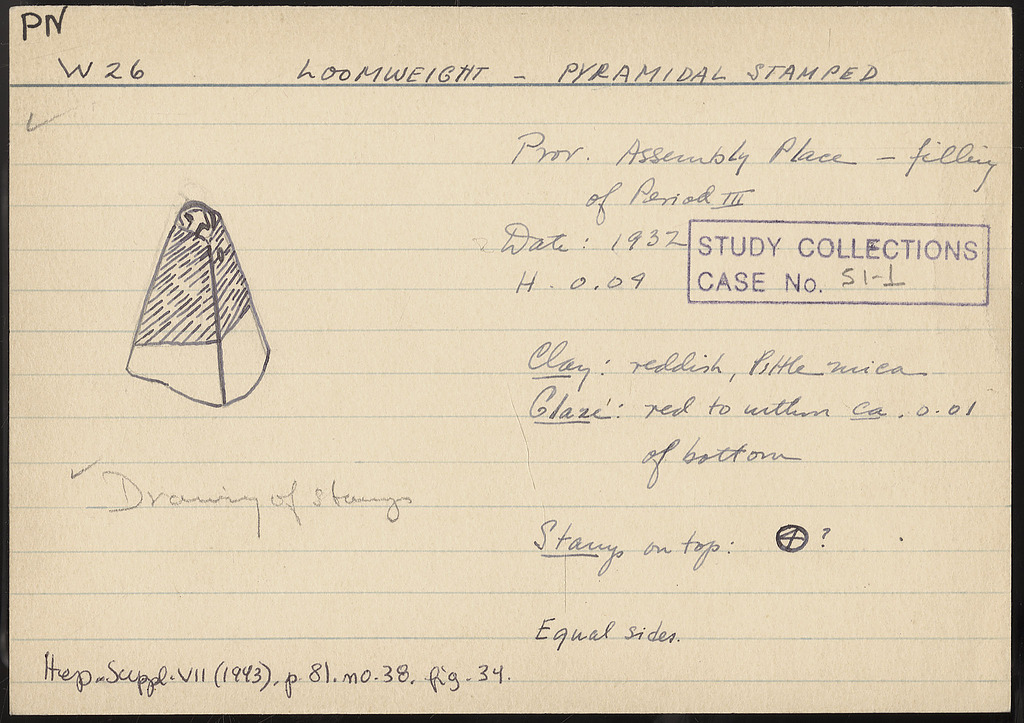 PN
W 26 LOOMWEIGHT - PYRAMIDAL STAMPED
Prov. Assembly Place - filling
of Period III
Date: 1932
H. 0.04
STUDY COLLECTIONS
CASE No. S1-1
Clay: reddish, little mica
Glaze: red to within ca. 0.01
of bottom
Drawing of stamps
Stamp on top: ?
Equal sides.
Hesp. Suppl. VII (1943), p. 81. no. 38, fig. 34.